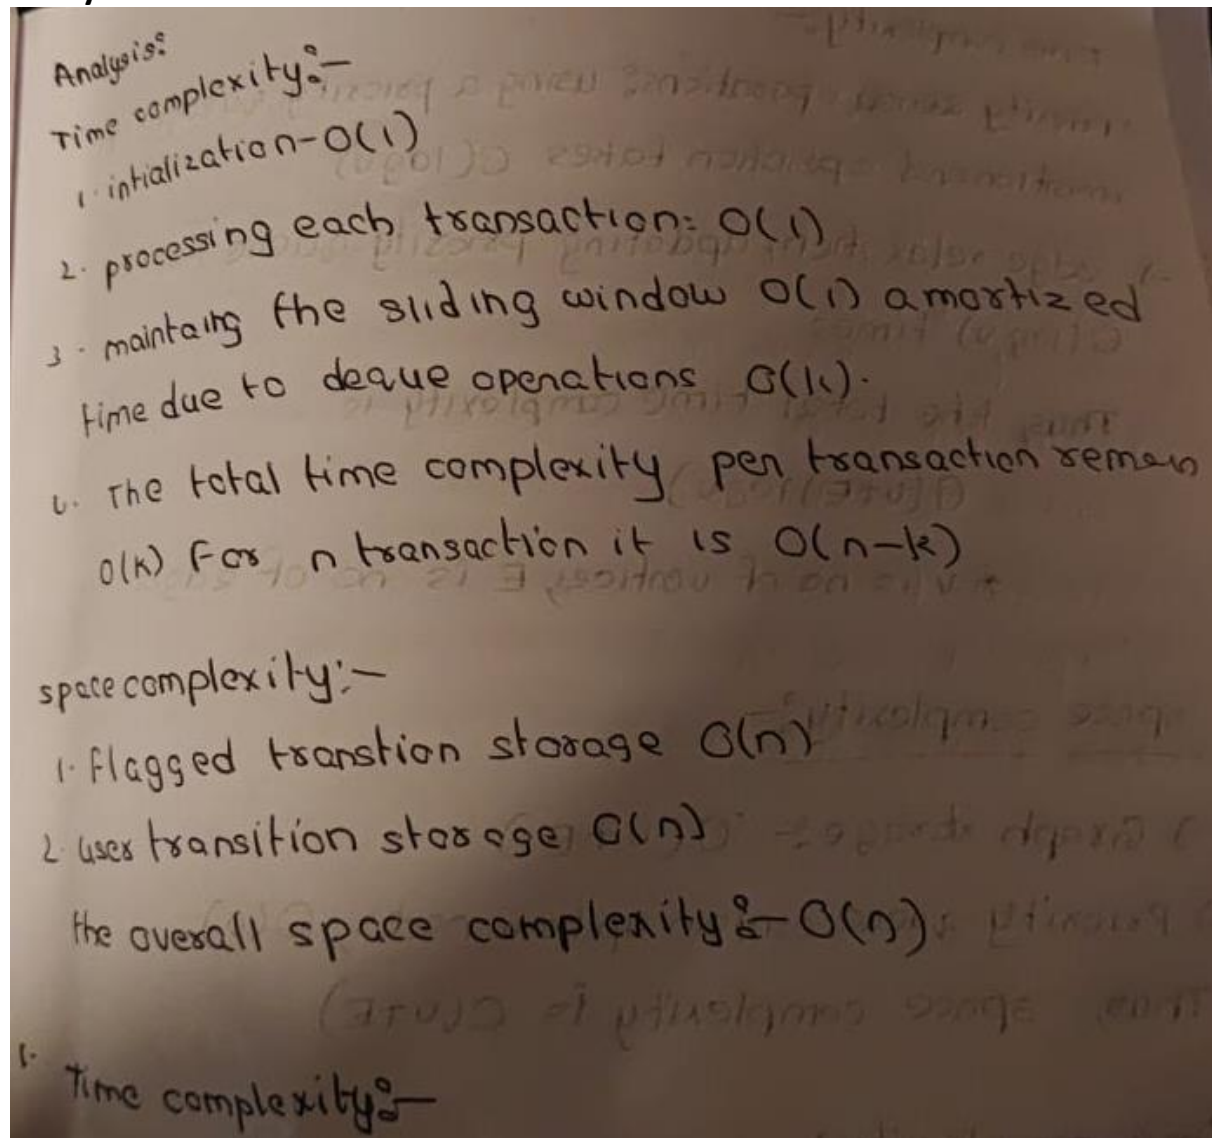 Analysis:
Time complexity:-
1. intialization-O(1)
2. processing each transaction: O(1)
3. maintaing the sliding window O(1) amortized
time due to deque openations O(k).
4. The total time complexity pen transaction remain
O(k) For n transaction it is O(n-k)
space complexity:-
1. flagged transtion storage O(n)
2. user transition storage O(n)
the overall space complenity:- O(n)
1.
Time complexity:-